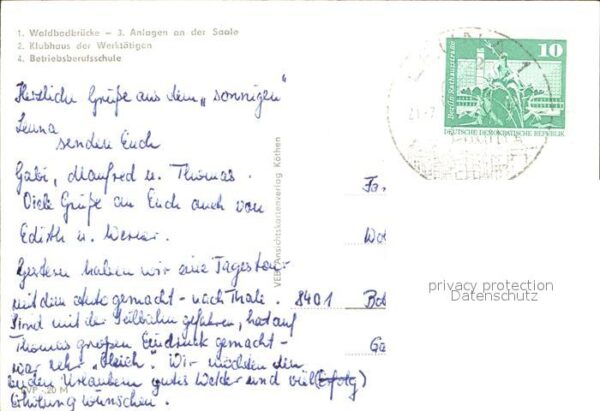 1. Waldbadbrücke – 3. Anlagen an der Saale
2. Klubhaus der Werktätigen
4. Betriebsberufsschule
10
Berlin, Rathausstraße
DEUTSCHE DEMOKRATISCHE REPUBLIK
Herzliche Grüße aus dem „sonnigen"
Leuna
senden Euch
Gabi, Manfred u. Thomas.
Viele Grüße an Euch auch von
Edith u. Werner.
Gestern haben wir eine Tagestour
mit dem Auto gemacht - nach Thale.
Sind mit der Seilbahn gefahren, hat auf
Thomas großen Eindruck gemacht -
war sehr „bleich". Wir möchten den
beiden Urlaubern gutes Wetter und viel (Erfolg)
Erholung wünschen.
VEB Ansichtskartenverlag Köthen
8401
privacy protection
Datenschutz
EVP -,20 M